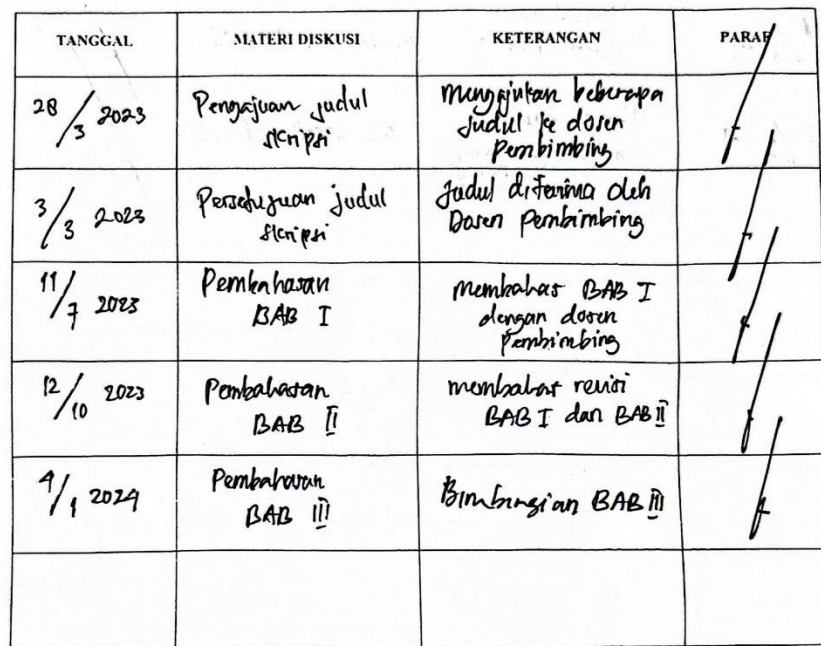 TANGGAL MATERI DISKUSI KETERANGAN PARAF
28/3 2023 Pengajuan judul skripsi mengajukan beberapa judul ke dosen Pembimbing
3/3 2023 Persetujuan judul skripsi Judul diterima oleh Dosen Pembimbing
11/7 2023 Pembahasan BAB I membahas BAB I dengan dosen Pembimbing
12/10 2023 Pembahasan BAB II membahas revisi BAB I dan BAB II
4/1 2024 Pembahasan BAB III Bimbingan BAB III